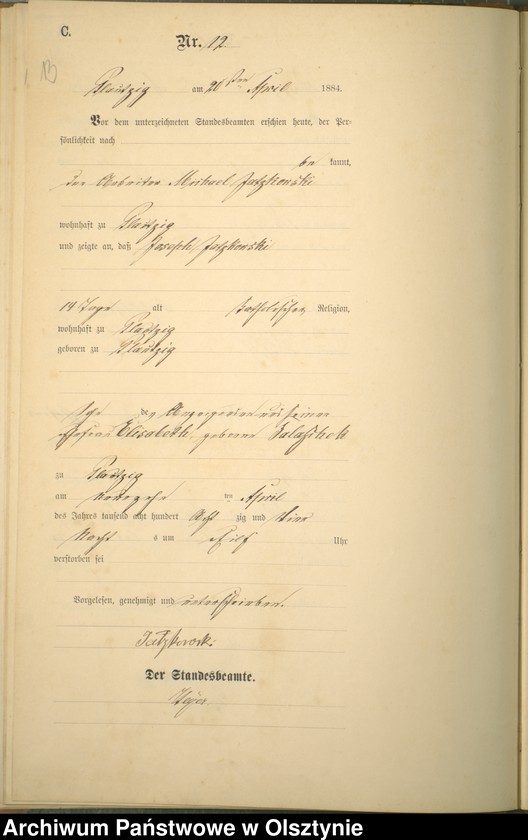 C.
Nr. 12
13
Plautzig am 20 ten April 1884.
Vor dem unterzeichneten Standesbeamten erschien heute, der Per-
sönlichkeit nach
be kannt,
der Arbeiter Michael Jatzkowski
wohnhaft zu Plautzig
und zeigte an, daß Joseph Jatzkowski
14 Tage alt katholischer Religion,
wohnhaft zu Plautzig
geboren zu Plautzig
Sohn des Angezeigenden und seiner
Ehefrau Elisabeth geborene
zu Plautzig
am ten April
des Jahres tausend acht hundert acht zig und vier
Nacht s um Elf Uhr
verstorben sei
Vorgelesen, genehmigt und unterschrieben.
Jatzkowski
Der Standesbeamte.
Archiwum Państwowe w Olsztynie